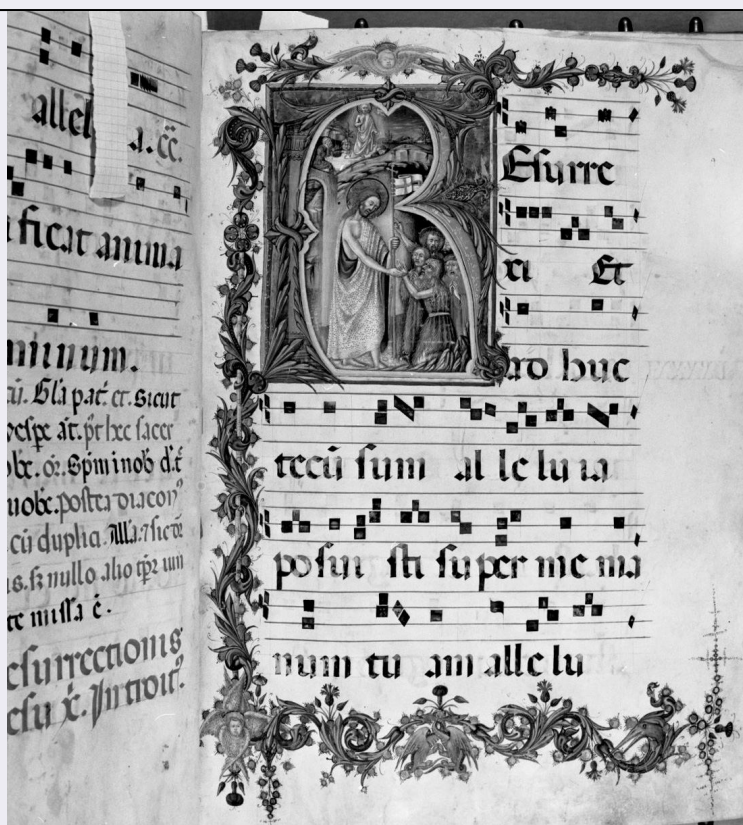 allel a. c̄c̄.
ficat anima
minum.
Gl̄a pat̄ et. sicut
vespe at. p̄t hec sacer
or̄. Sp̄m inob d.t̄
uobc. postea diacon⁹
cū duplici All'a. 7 sic
s. s; nullo alio
te missa ē.
esurrectionis
esu x̄. Introit⁹.
REsurre
xi Et
ad huc
tecū sum al le lu ia
posui sti su per me ma
num tu am alle lu